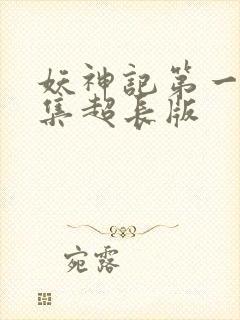 妖神記第一
集超長版
宛露